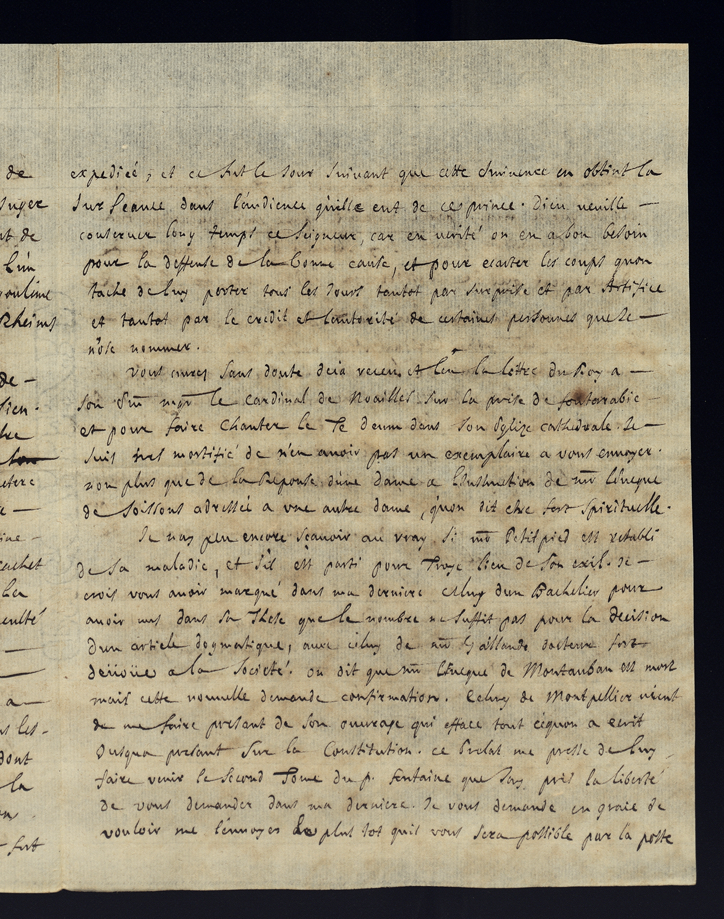 de
suyer
nt de
Rheims
de -
sien.
cachet
La
culté
a -
dont
la
fort
expediée, et ce fut le Jour suivant que cette eminence en obtint la
surseance dans l'audience qu'elle eut de ces prince. Dieu veuille -
conserver long temps ce seigneur, car en verité on en a bon besoin
pour la deffense de la bonne cause, et pour ecarter les coups qu'on
tache de luy porter tous les Jours tantot par surprise et par Artifice
et tantot par le credit et l'autorité de certaines personnes que Je -
n'ose nommer.
Vous aurez sans doute deja receu, et leu la lettre du Roy a -
son Em mgr le Cardinal de Noailles sur la prise de fontarabie
et pour faire chanter le Te deum dans son Eglize cathedrale. Je -
suis tres mortifié de n'en avoir pas un exemplaire a vous envoyer.
non plus que de La Reponse d'une dame a L'instruction de mr L'eveque
de soissons adressée a une autre dame, qu'on dit etre fort spirituelle.
Je n'ay peu encore scavoir au vray si mr Petitpied est retabli
de sa maladie, et s'il est parti pour Troye lieu de son exil. Je -
crois vous avoir marqué dans ma derniere celuy d'un Bachelier pour
avoir mis dans sa These que le nombre ne suffit pas pour la decision
d'un article dogmatique, avec celuy de mr Gaillande docteur fort
devoüe a la Societé. on dit que mr L'eveque de Montauban est mort
mais cette nouvelle demande confirmation. Celuy de Montpellier vient
de me faire present de son ouvrage qui efface tout cequon a ecrit
Jusqua present sur la Constitution. ce Prelat me presse de luy
faire venir le second Tome du p. fontaine que J'ay pris la liberté
de vous demander dans ma derniere. Je vous demande en grace de
vouloir me l'envoyer le plus tot qu'il vous sera possible par la poste